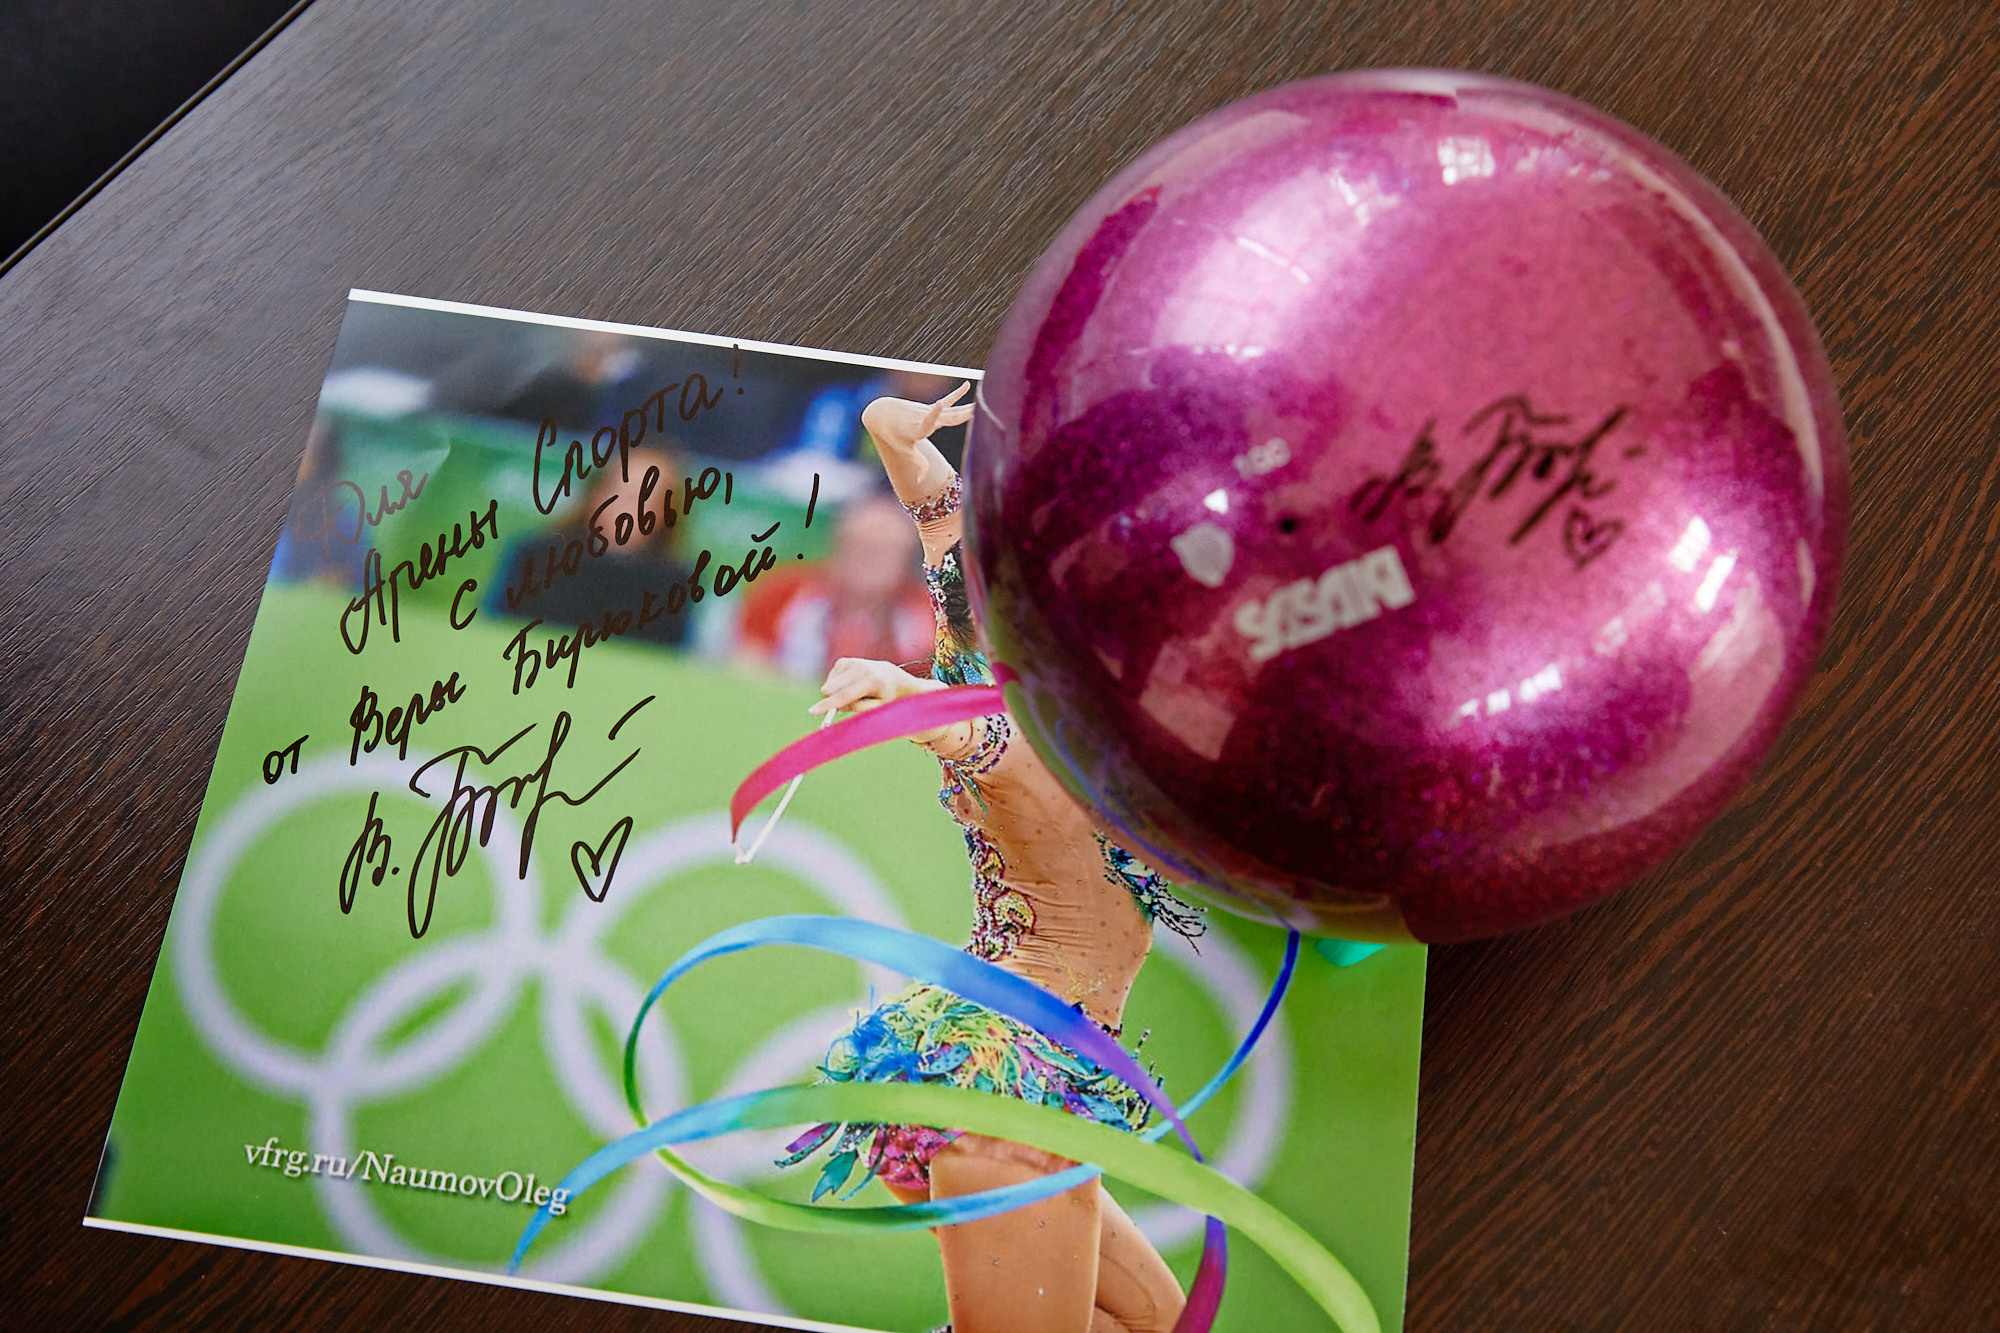 Для
Арены Спорта!
с любовью,
от Веры Бирюковой!
В. Бир
vfrg.ru/NaumovOleg
SASAKI